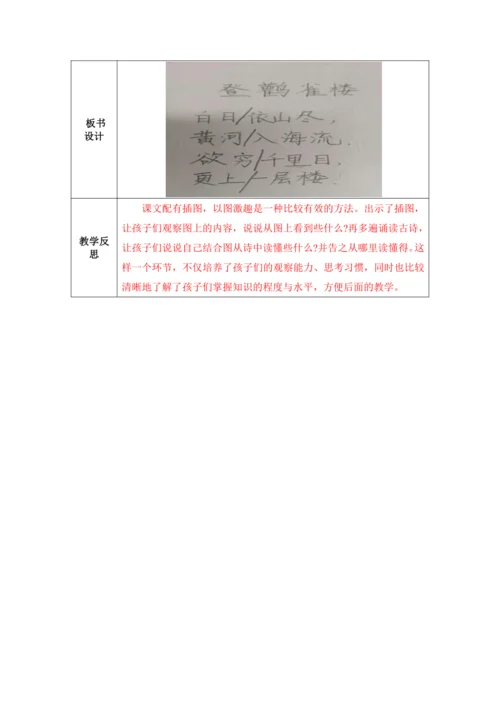 板书
设计
登鹳雀楼
白日/依山尽,
黄河/入海流.
欲穷/千里目,
更上/一层楼.
教学反
思
课文配有插图，以图激趣是一种比较有效的方法、出示了插图，
让孩子们观察图上的内容，说说从图上看到些什么?再多遍诵读古诗，
让孩子们说说自己结合图从诗中读懂些什么?并告之从哪里读懂得。这
样一个环节，不仅培养了孩子们的观察能力、思考习惯，同时也比较
清晰地了解了孩子们掌握知识的程度与水平，方便后面的教学。